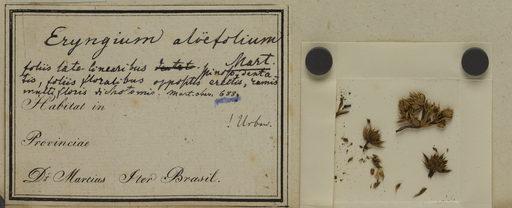 Eryngium aloëfolium
Mart.
foliis late linearibus pinoso-denta-
tis, foliis floralibus oppositis erectis, ramis
multifloris dichotomis. Mart. obs. 688.
Habitat in
! Urban.
Provinciae
Dr Martius Iter Brasil.